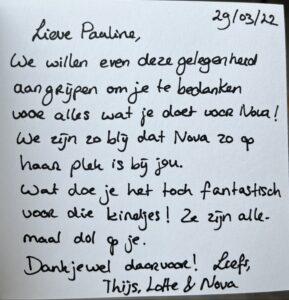 29/03/22
Lieve Pauline,
We willen even deze gelegenheid
aangrijpen om je te bedanken
voor alles wat je doet voor Nova!
We zijn zo blij dat Nova zo op
haar plek is bij jou.
Wat doe je het toch fantastisch
voor die kindjes! Ze zijn alle-
maal dol op je.
Dankjewel daarvoor! Liefs,
Thijs, Lotte & Nova